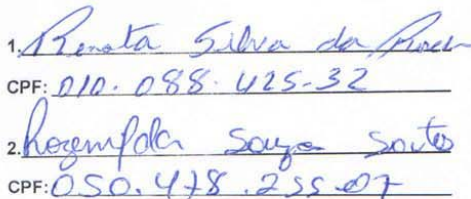 1. Renata Silva da Rocha
CPF: 010.088.425-32
2. Souza Santos
CPF: 050.478.255-07